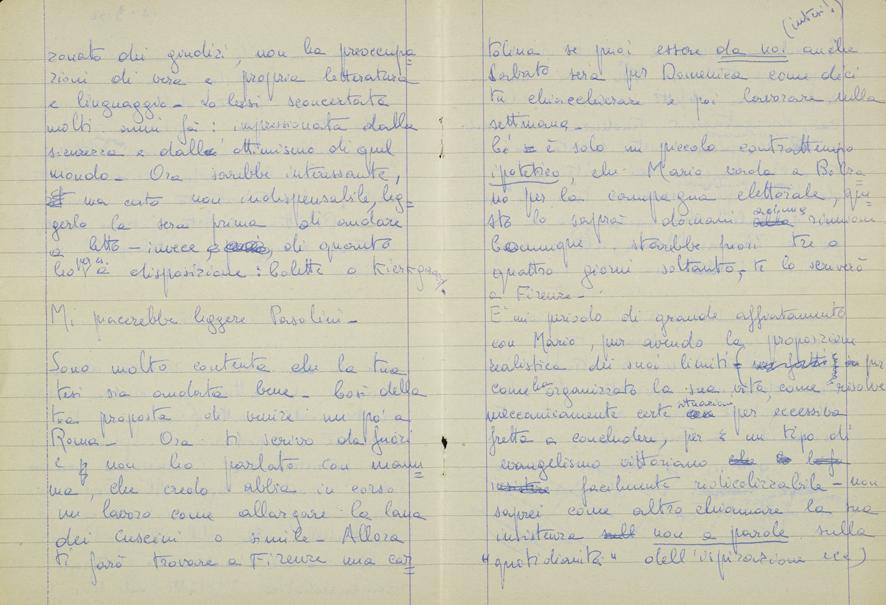 zonato dei giudizi, non ha preoccupa=
zioni di vera e propria letteratura
e linguaggio - Lo lessi sconcertata
molti anni fa: impressionata dalla
sicurezza e dall' ottimismo di quel
mondo - Ora sarebbe interessante,
ma certo non indispensabile, leg=
gerlo la sera prima di andare
a letto - invece, di quanto
ho già a disposizione: Colette o Kierkegaard.
Mi piacerebbe leggere Pasolini -
Sono molto contenta che la tua
tesi sia andata bene - Così della
tua proposta di venire un pò a
Roma - Ora ti scrivo da fuori
e non ho parlato con mam=
ma, che credo abbia in corso
un lavoro come allargare la lana
dei cuscini o simile - Allora
ti farò trovare a Firenze una car=
(intesi!)
tolina se puoi essere da noi anche
Sabato sera per Domenica come dici
tu chiacchierare e poi lavorare nella
settimana -
C'è è solo un piccolo contrattempo
ipotetico, che Mario vada a Bolza
no per la campagna elettorale, que=
sto lo saprà domani riunione
Comunque starebbe fuori tre o
quattro giorni soltanto, te lo scriverò
a Firenze -
È un periodo di grande affiatamento
con Mario, pur avendo la proposizione
realistica dei suoi limiti ( per
come ha organizzato la sua vita, come risolve
meccanicamente certe situazioni per eccessiva
fretta a concludere, per un tipo di
evangelismo vittoriano
facilmente ridicolizzabile - non
saprei come altro chiamare la sua
insistenza non a parole sulla
"quotidianità" dell'ispirazione ecc)